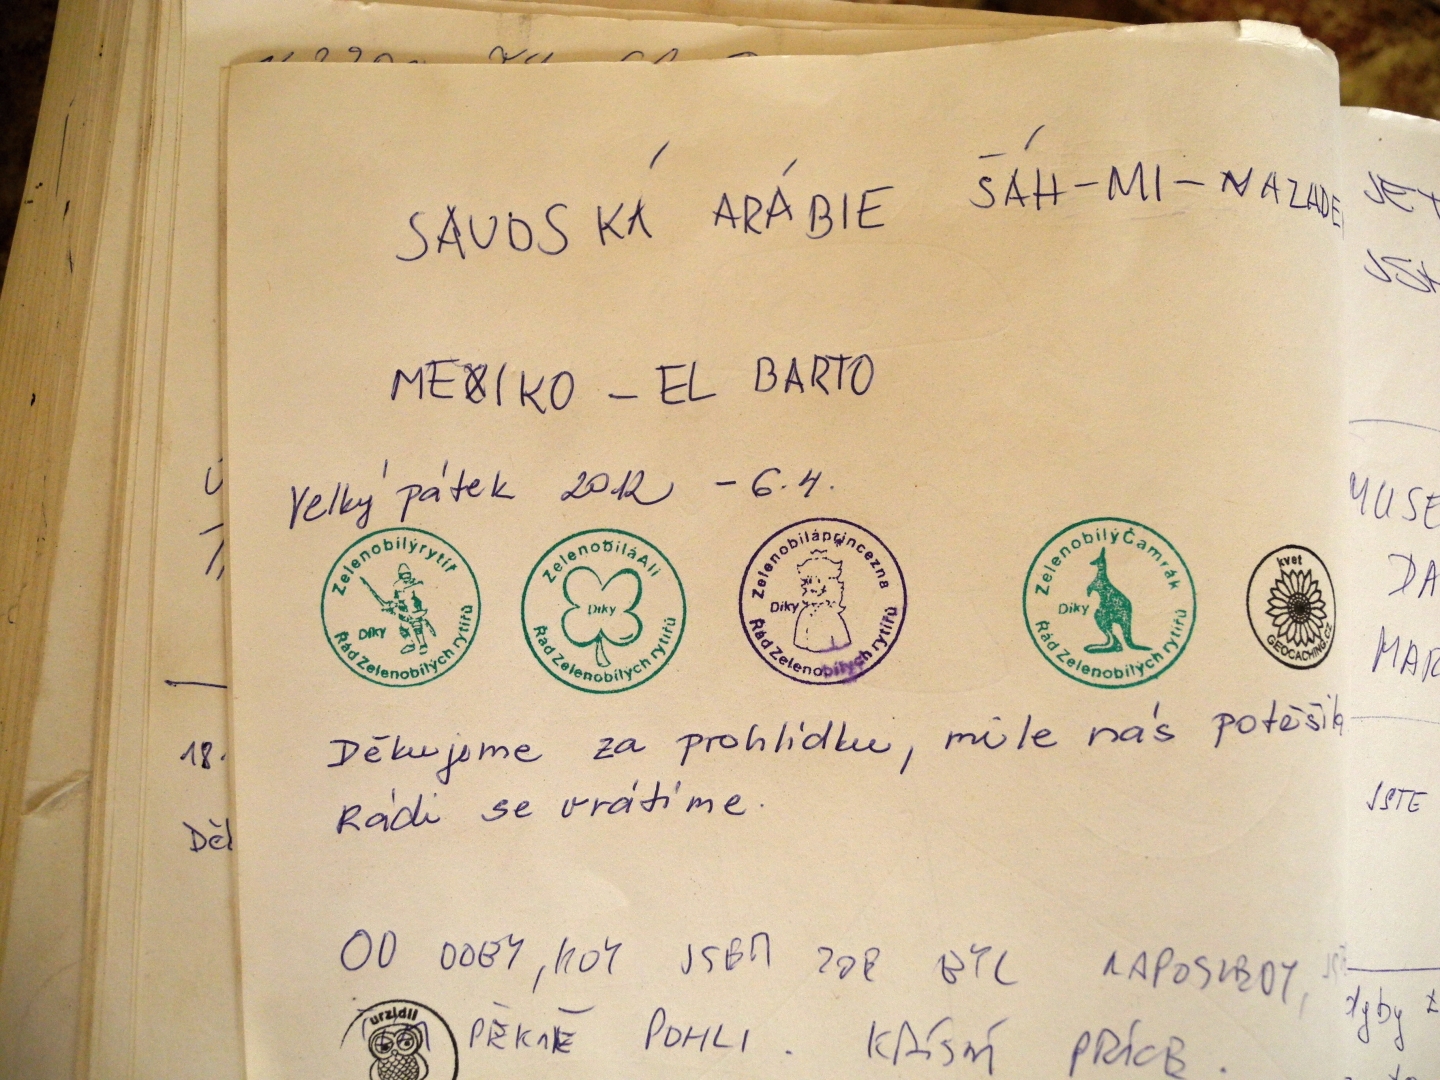 SAUDSKÁ ARÁBIE ŠÁH-MI-NAZADE
MEXIKO - EL BARTO
Velký pátek 2012 - 6.4.
Zelenobilýrytíř
Díky
Řád Zelenobilých rytířů
ZelenobiláAli
Díky
Řád Zelenobilých rytířů
Zelenobiláprincezna
Díky
Řád Zelenobilých rytířů
ZelenobilýČamrák
Díky
Řád Zelenobilých rytířů
kvet
GEOCACHING.cz
Děkujeme za prohlídku, míle nás potěšila
Rádi se vrátíme.
OD DOBY, KDY JSEM ZDE BYL NAPOSLEDY,
PĚKNĚ POHLI. KRÁSNÁ PRÁCE.
urzidil
18.
JSTE
kyby